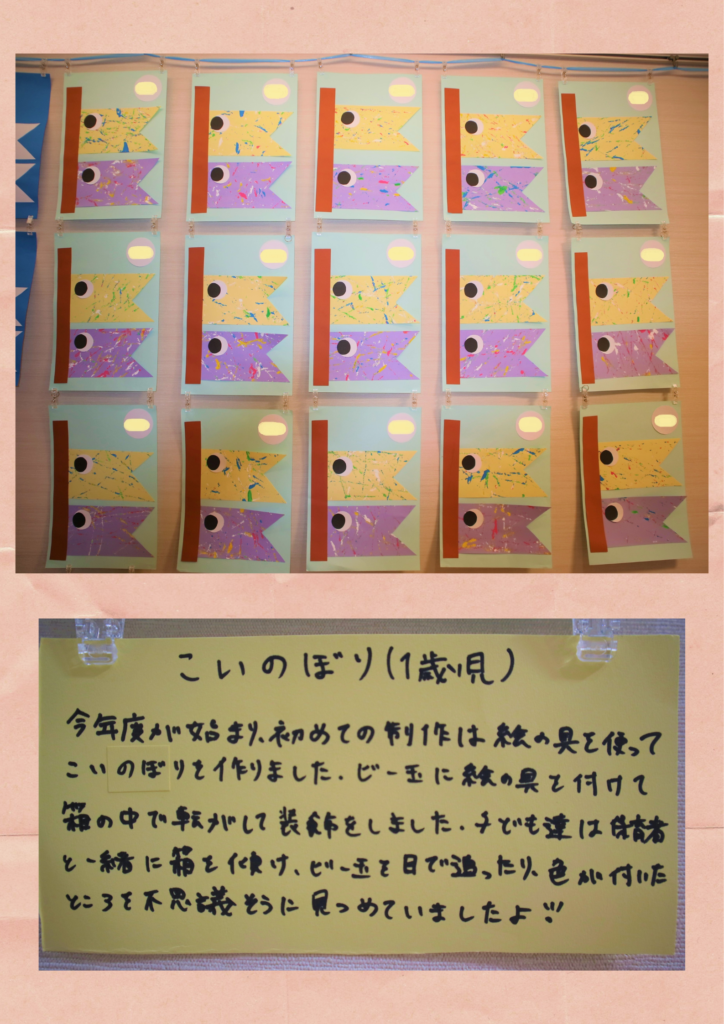 こいのぼり(1歳児)
今年度が始まり、初めての制作は絵の具を使って
こいのぼりを作りました。ビー玉に絵の具を付けて
箱の中で転がして装飾をしました。子ども達は保育者
と一緒に箱を傾け、ビー玉を目で追ったり、色が付いた
ところを不思議そうに見つめていましたよ!!